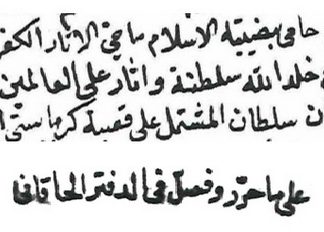 حامى بيضة الاسلام ماحى الاثار الكفر
خلد الله سلطنة و اثار على العالمين
ن سلطان المشتمل على قصبة كرماستى
على ما حرّر و فصل فى الدفتر الخاقانى